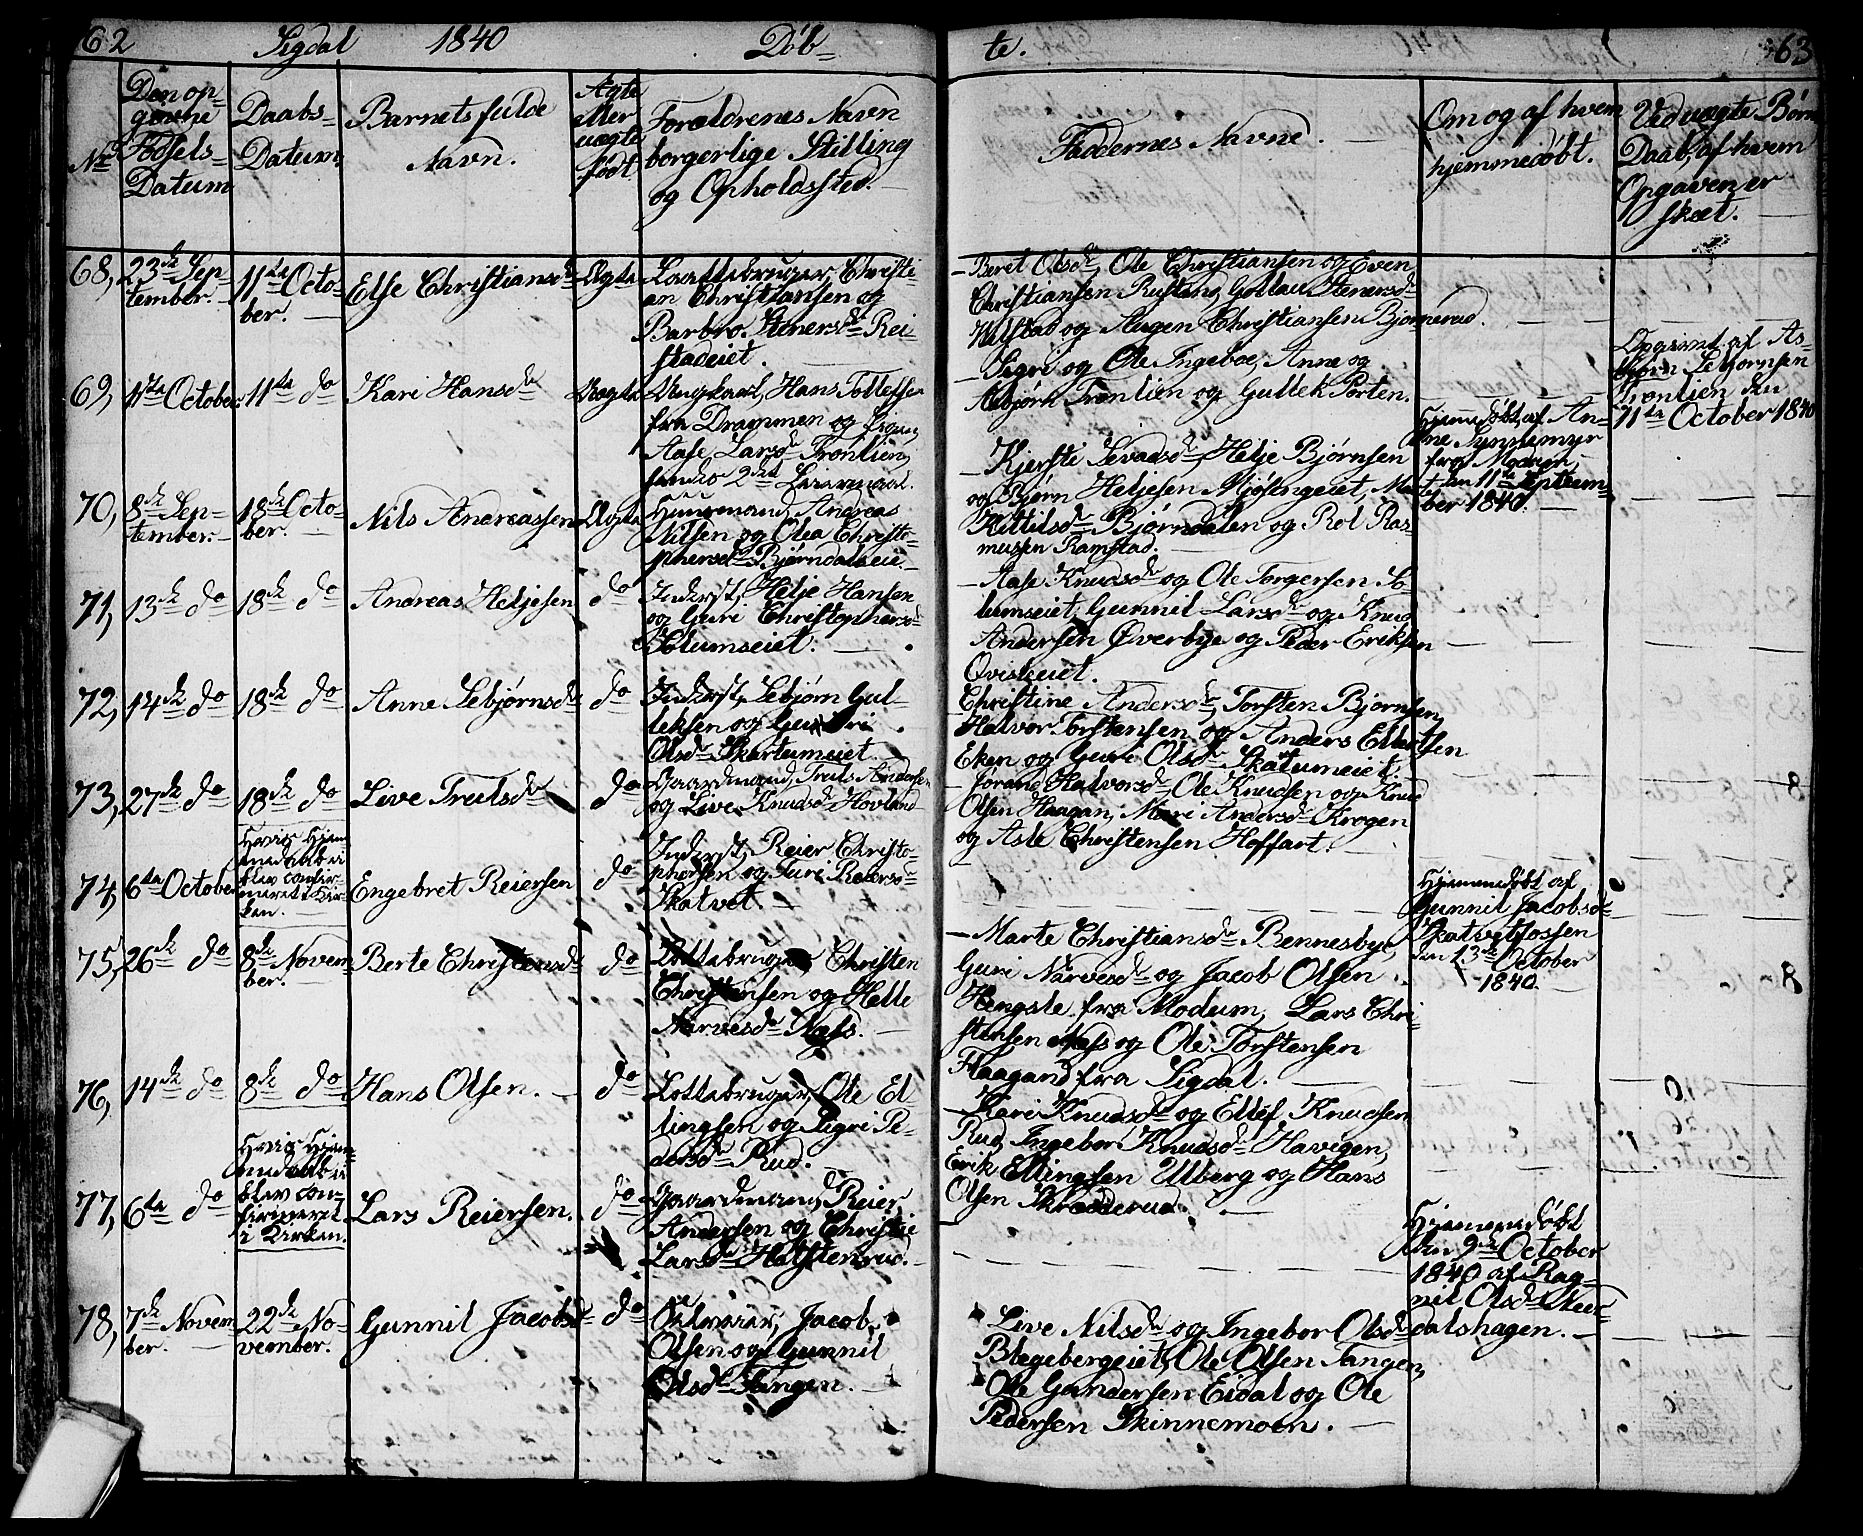 62 Sigdal 1840 Døb-
te. 63
No
Den op-
givne
Fødsels-
Datum
Daabs-
Datum.
Barnets fulde
Navn.
Ægte
eller
uægte
født.
Forældrenes Navn
borgerlige Stilling
og Opholdssted.
Faddernes Navne.
Om og af hvem
hjemmedøbt.
Ved uægte Børns
Daab, af hvem
Opgaven er
skeet.
68, 23de Sep-
tember.
11te Octo-
ber.
Else Christiansdr
Ægte
Christi-
an Christiansen og
Barbro Stenersdr Rei-
stadeiet.
Beret Olsdr, Ole Christiansen og Even
Christiansen Rustan, Stenersdr
og Augen Christiansen Bjornerud.
69, 1ste October
11te do
Kari Hansdr
Uægte
Ungkarl, Hans Tollefsen
fra Drammen og Pigen
Aase Larsdr Trønlien,
2det Leiermaal.
Sigri og Ole Ingeboe, Anne og
Asbjørn Trønlien og Gullek Porten.
Opgivet af As-
bjørn Sebjørnsen
Trønlien den
11te October 1840
70, 8de Sep-
tember.
18de Octo-
ber.
Nils Andreassen
Ægte
Huusmand, Andreas
Nilsen og Olea Christo-
phersdr Bjørndalseie.
Kjersti Sevadsdr, Helje Bjørnsen
og Bjørn Heljesen Mjøsingeiet,
Kittilsdr Bjørndalen og Rol Ras-
musen Ramstad.
Hjemmedøbt af An-
ne
fra Modum
den 11te Septem-
ber 1840.
71, 13de do
18de do
Andreas Heljesen
do
Inderst, Helje Hansen
og Guri Christophersdr
Solumseiet.
Aase Knudsdr og Ole Torgersen So-
lumseiet, Gunnil Larsdr og Knud
Andersen Øverbye og Peder Eriksen
Qvisleiet.
72, 14de do
18de do
Anne Sebjørnsdr
do
Inderst, Sebjørn Gul-
leksen og Guri
Olsdr Skartumeiet.
Christine Andersdr, Torsten Bjørnsen,
Halvor Torstensen og Anders Ellertsen
Eken og Guri Olsdr Skatumeiet.
73, 27de do
18de do
Live Trulsdr
do
Gaardmand, Truls Andersen
og Live Knudsdr Hovland
Jorand Halvorsdr, Ole Knudsen og Knud
Olsen Haagan, Mari Andersdr Krogen
og Asle Christensen Hoffart.
74, 6te October
Hvis Hjem-
medaab ei
blev confir-
meret i Kir-
ken.
Engebret Reiersen
do
Inderst, Reier Christo-
phersen og Turi Reiersdr
Skatvet.
Hjemmedøbt af
Gunnil Jacobsdr
Skatvetfossen
den 13de October
1840.
75, 26de do
8de Novem-
ber.
Berte Christensdr
do
Lottebruger Christen
Christensen og Helle
Narvesdr Næss.
Marte Christiansdr Bennesbye,
Guri Narvesdr og Jacob Olsen
Hengsle fra Modum, Lars Chri-
stensen Næss og Ole Torstensen
Haagand fra Sigdal.
76, 14de do
8de do
Hans Olsen.
do
Lottebruger, Ole El-
lingsen og Sigri Pe-
dersdr Rud.
Kari Knudsdr og Ellef Knudsen
Rud, Ingebor Knudsdr Havigen,
Erik Ellingsen Ulberg og Hans
Olsen Skrædderud.
77, 6te do
Hvis Hjem-
medaab ei
blev con-
firmeret
i Kirken.
Lars Reiersen.
do
Gaardmand, Reier
Andersen og Christie
Larsdr Halstenrud.
Hjemmedøbt
den 9de October
1840 af Rag-
nil Olsdr
dalshagen.
78, 7de Novem-
ber.
22de No-
vember.
Gunnil Jacobsdr
do
Jacob
Olsen og Gunnil
Olsdr Tangen.
Live Nilsdr og Ingebor Olsdr
Blegebergeiet, Ole Olsen Tangen,
Ole Gundersen Eidal og Ole
Pedersen Skinnemoen.